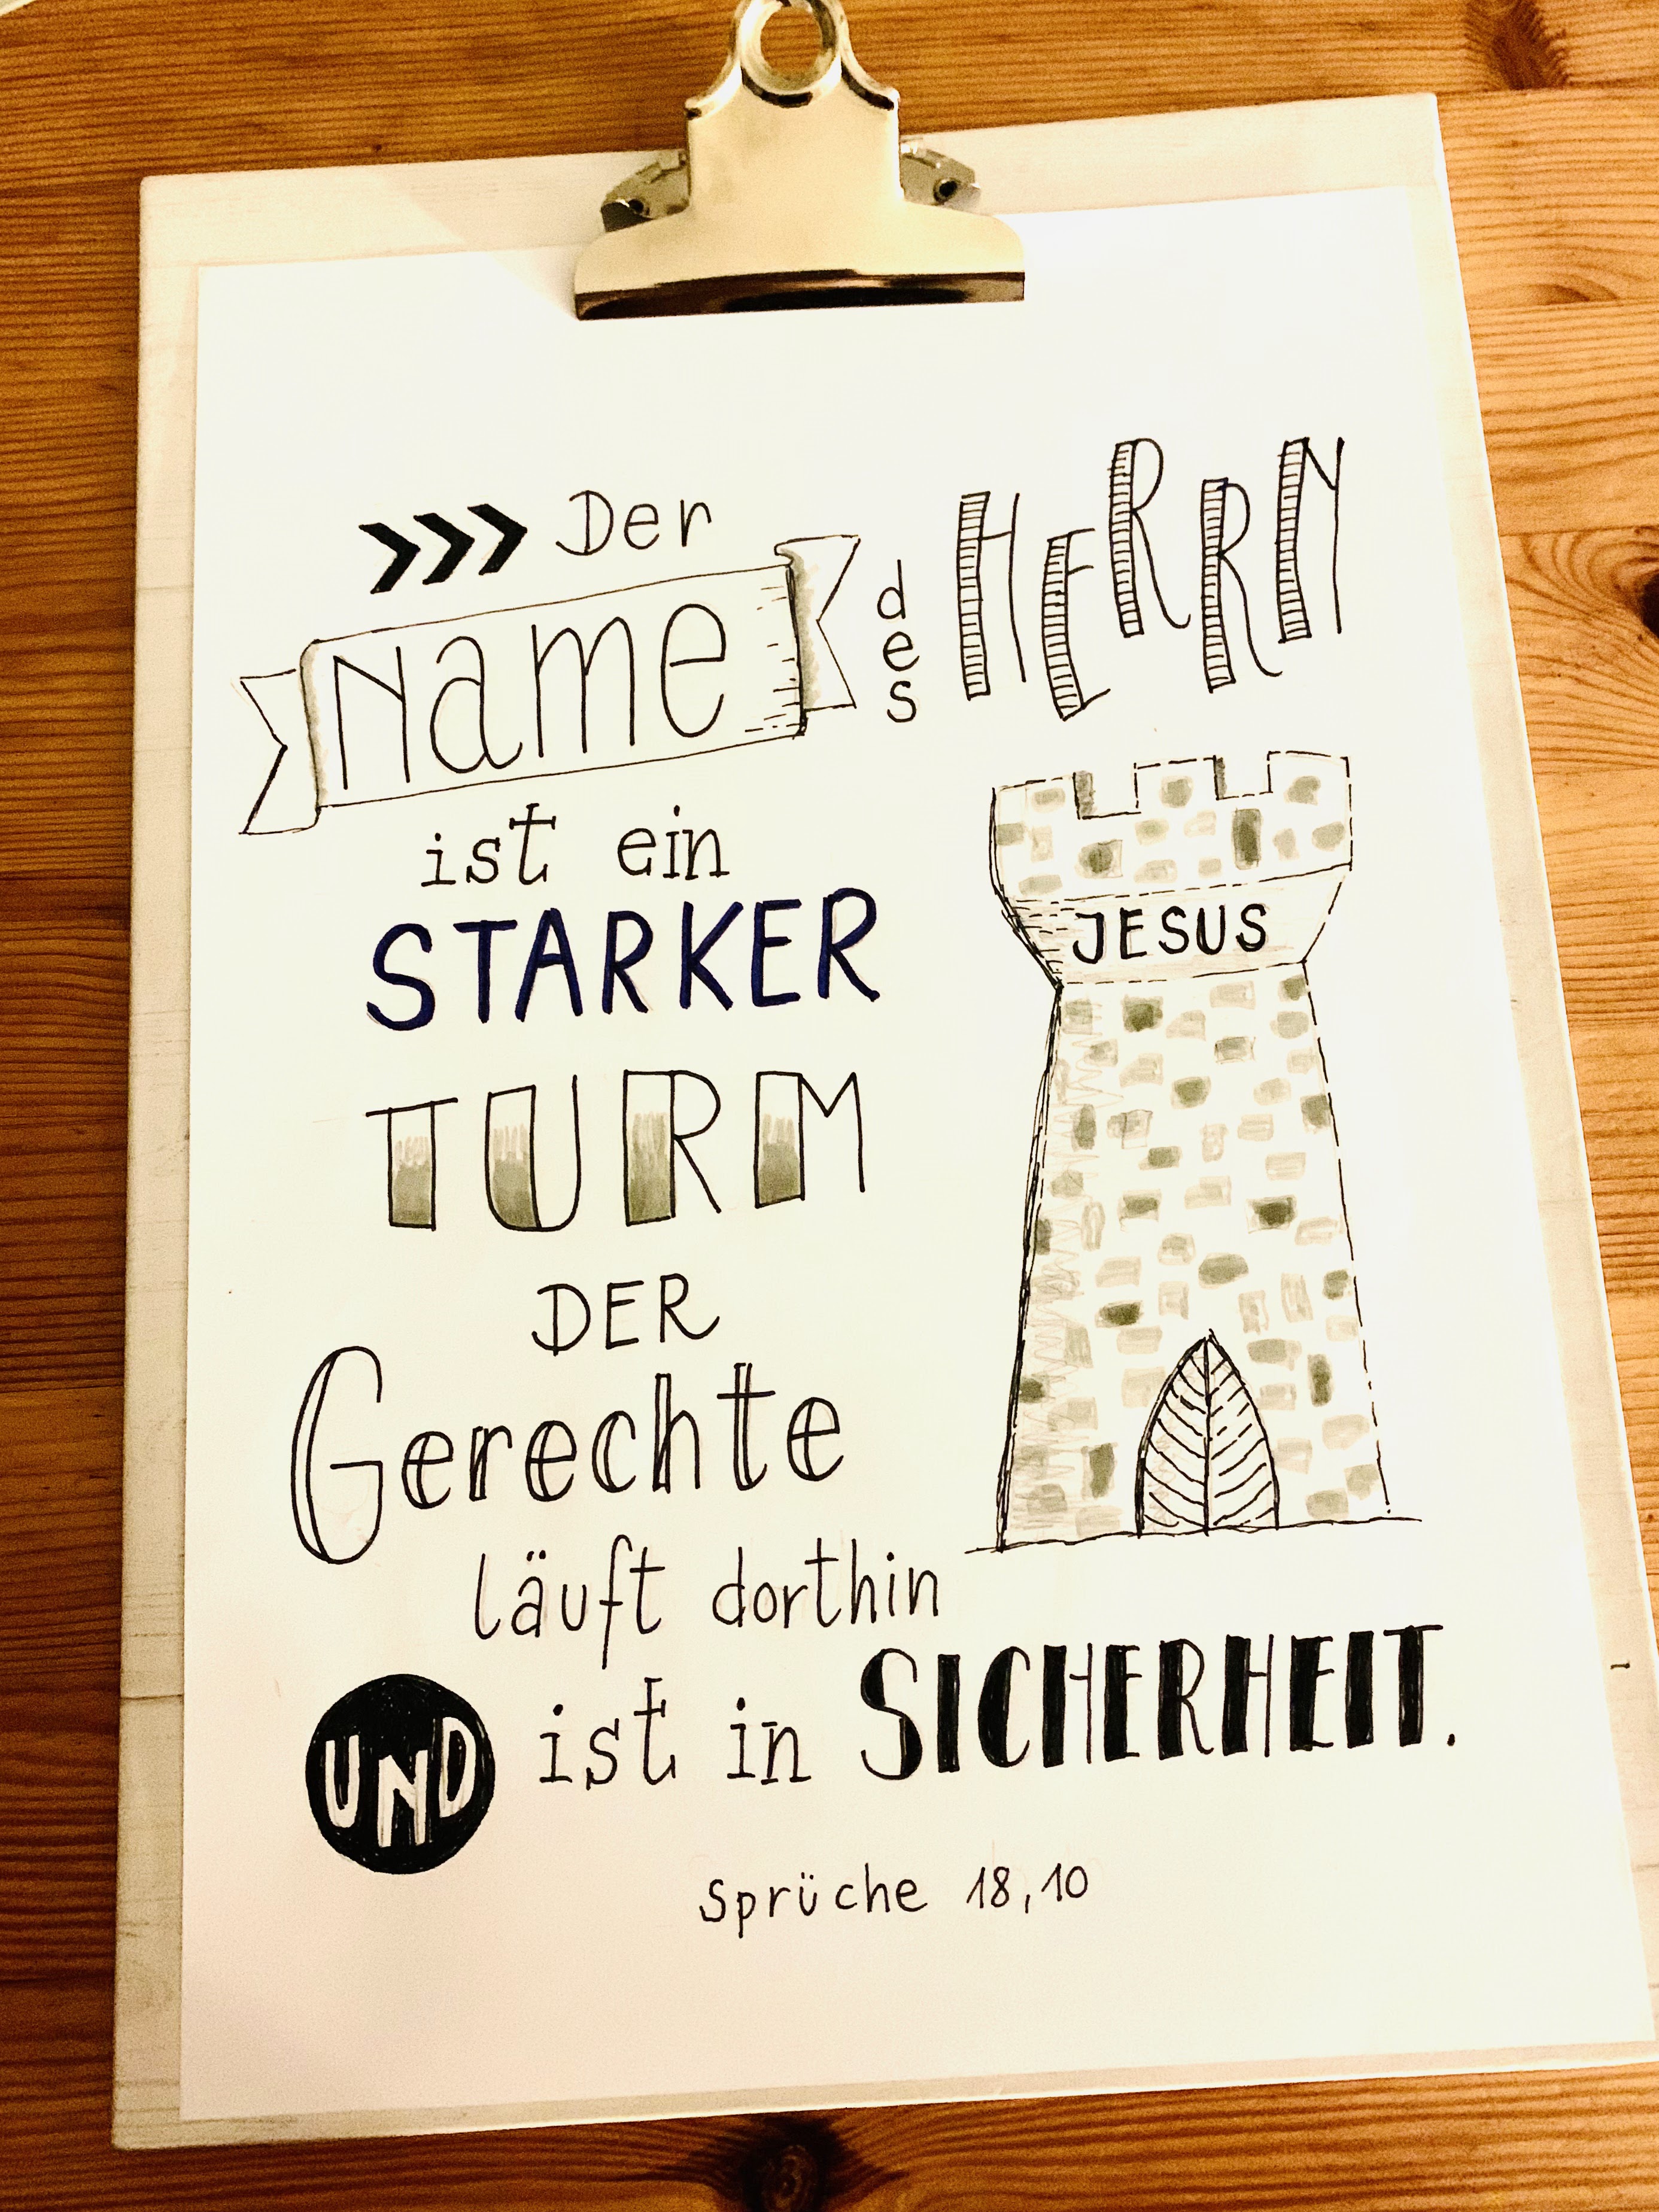 Der
Name des HERRN
ist ein
STARKER
TURM
JESUS
DER
Gerechte
läuft dorthin
UND ist in SICHERHEIT.
Sprüche 18,10